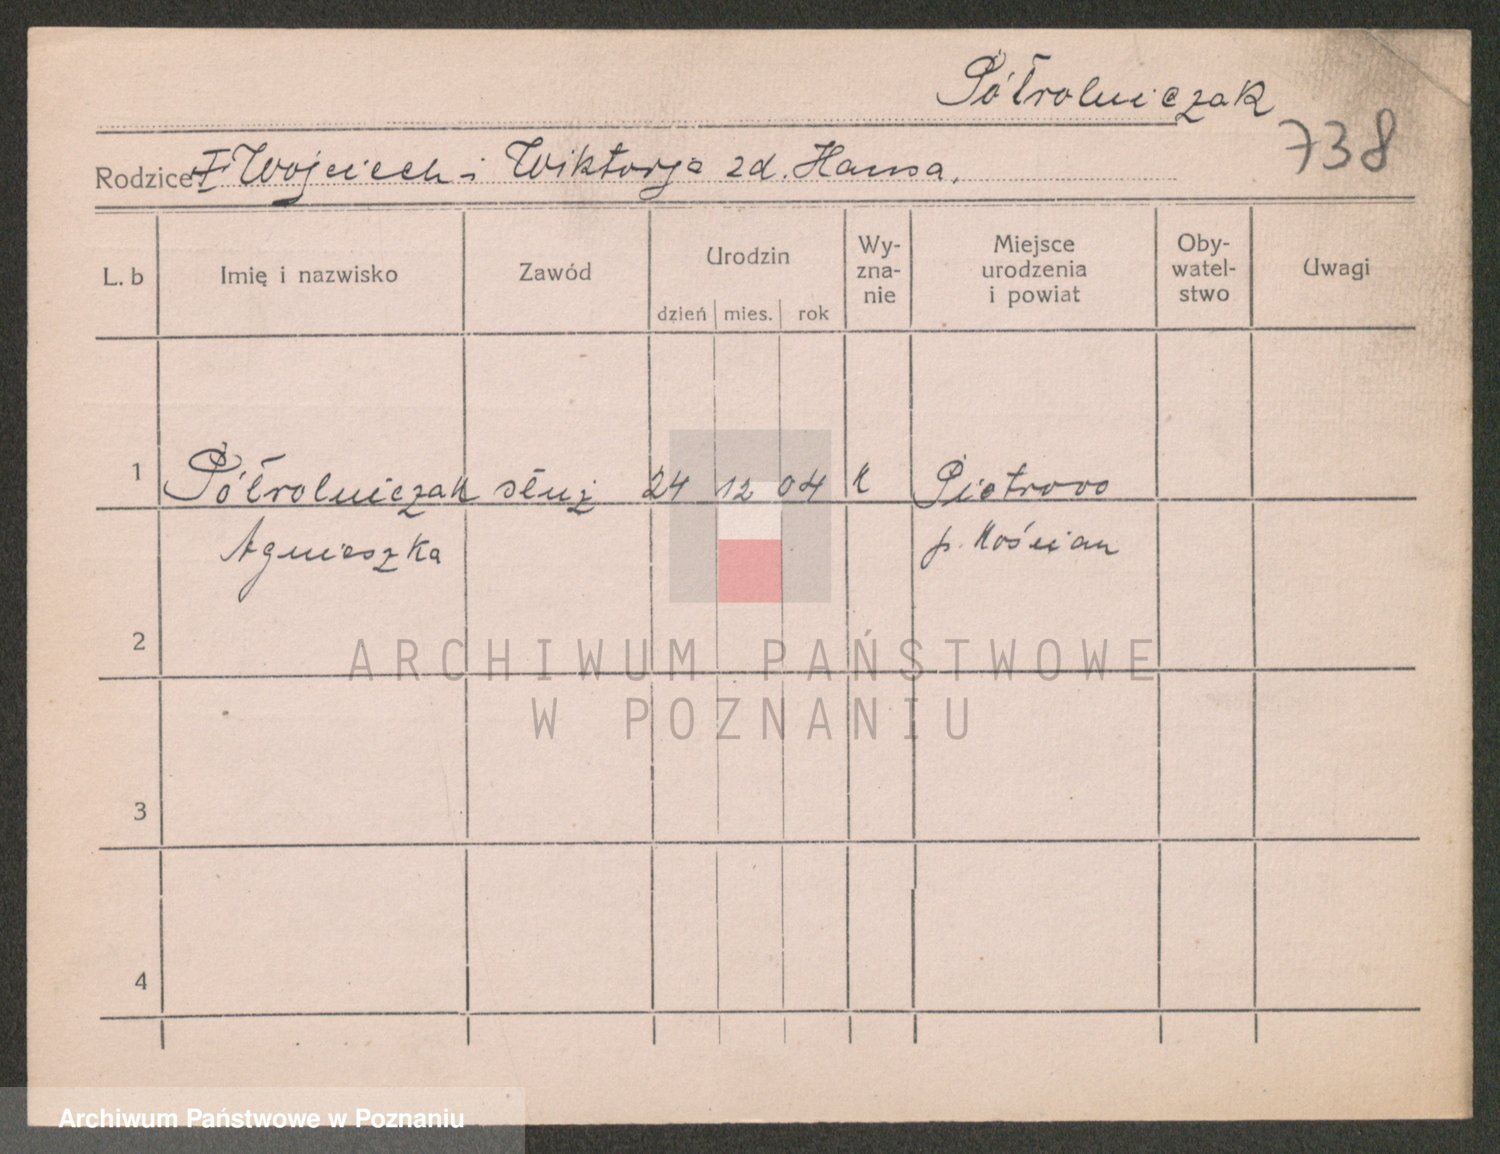 Półrolniczak
738
Rodzice I Wojciech i Wiktorja zd. Hansa.
L. b Imię i nazwisko Zawód Urodzin dzień mies. rok Wy-zna-nie Miejsce urodzenia i powiat Oby-watel-stwo Uwagi
1 Półrolniczak służ 24 12 04 k Piotrowo
Agnieszka p. Kościan
2
ARCHIWUM PAŃSTWOWE
W POZNANIU
3
4
Archiwum Państwowe w Poznaniu